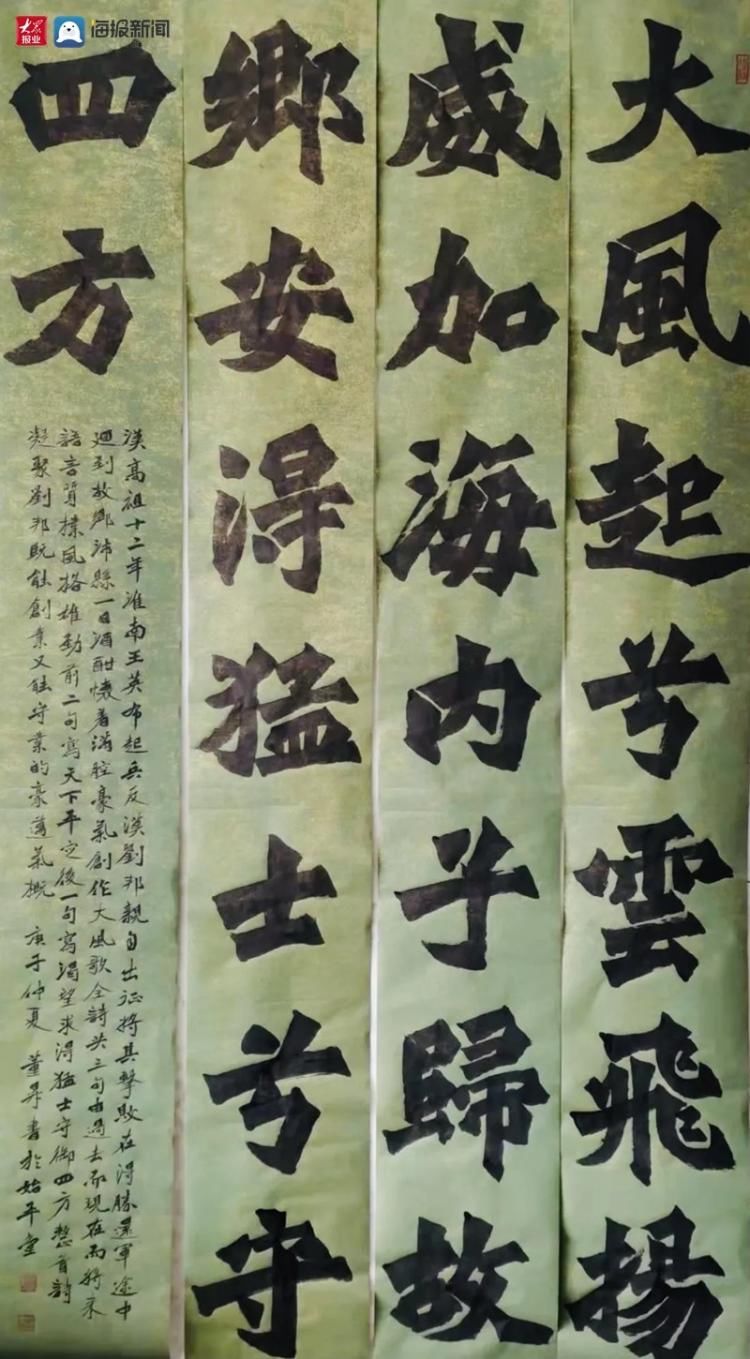 大众
报业
海报新闻
大風起兮雲飛揚
威加海內予歸故
鄉安得猛士兮守
四方
漢高祖十二年淮南王英布起兵反漢劉邦親自出征將其擊敗在得勝還軍途中
廻到故鄉沛縣一日酒酣懷着滿腔豪氣創作大風歌全詩共三句由過去現在而將来
語言質樸風格雄勁前二句寫天下平定後一句寫渴望求得猛士守御四方整首詩
凝聚劉邦既能創業又能守業的豪邁氣概 庚子仲夏 董昇書於始平堂